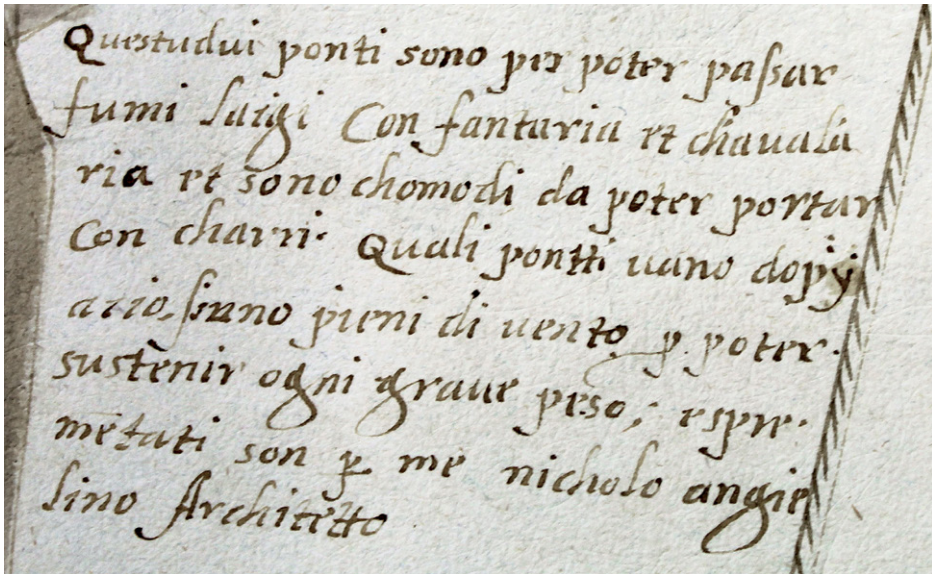 Questudui ponti sono per poter passar
fumi laigi Con fantaria et chavala
ria et sono chomodi da poter portar
Con charri. Quali pontti uano dopij
acio, siano pieni di vento p poter.
sustenir ogni graue peso; espre.
mētati son p me nicholo angie
lino Architetto